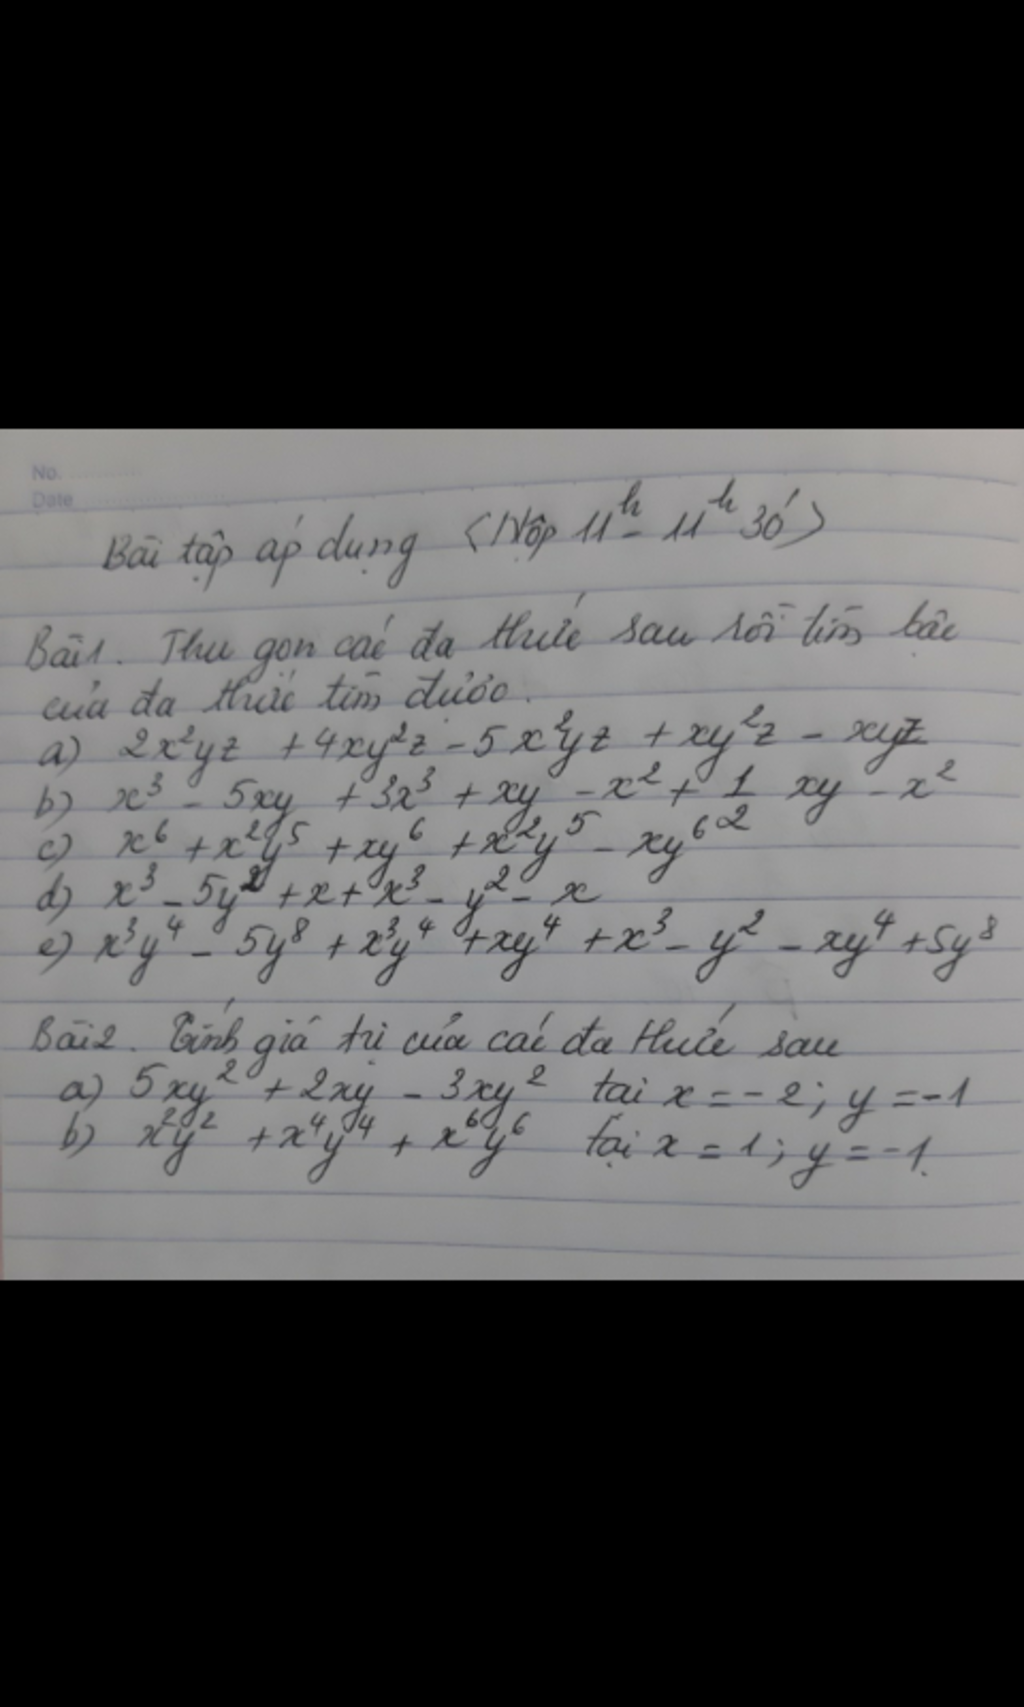 No.
Date
Bài tập áp dụng <Nộp 11h - 11h 30'>
Bài 1. Thu gọn các đa thức sau rồi tìm bậc
của đa thức tìm được.
a) 2x²yz + 4xy²z - 5x²yz + xy²z - xyz
b) x³ - 5xy + 3x³ + xy - x² + 1/2 xy - x²
c) x⁶ + x²y⁵ + xy⁶ + x²y⁵ - xy⁶
d) x³ - 5y² + x + x³ - y² - x
e) x³y⁴ - 5y⁸ + x³y⁴ + xy⁴ + x³ - y² - xy⁴ + 5y⁸
Bài 2. Tính giá trị của các đa thức sau
a) 5xy² + 2xy - 3xy² tại x = -2; y = -1
b) x²y² + x⁴y⁴ + x⁶y⁶ tại x = 1; y = -1.